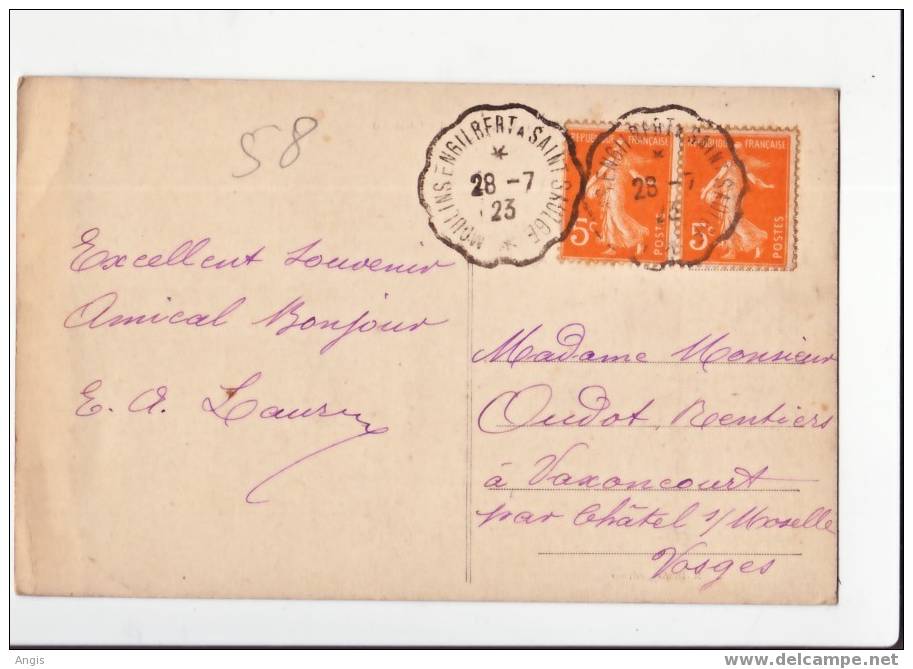 58
MOULINS ENGILBERT A SAINT SAULGE
28 -7
23
REPUBLIQUE FRANÇAISE
5c
POSTES
28 -7
23
REPUBLIQUE FRANÇAISE
5c
POSTES
Excellent souvenir
Amical Bonjour
E. A.
Madame Monsieur
Oudot Rentiers
à Vaxoncourt
par Châtel s/ Moselle
Vosges
Angis
www.delcampe.net